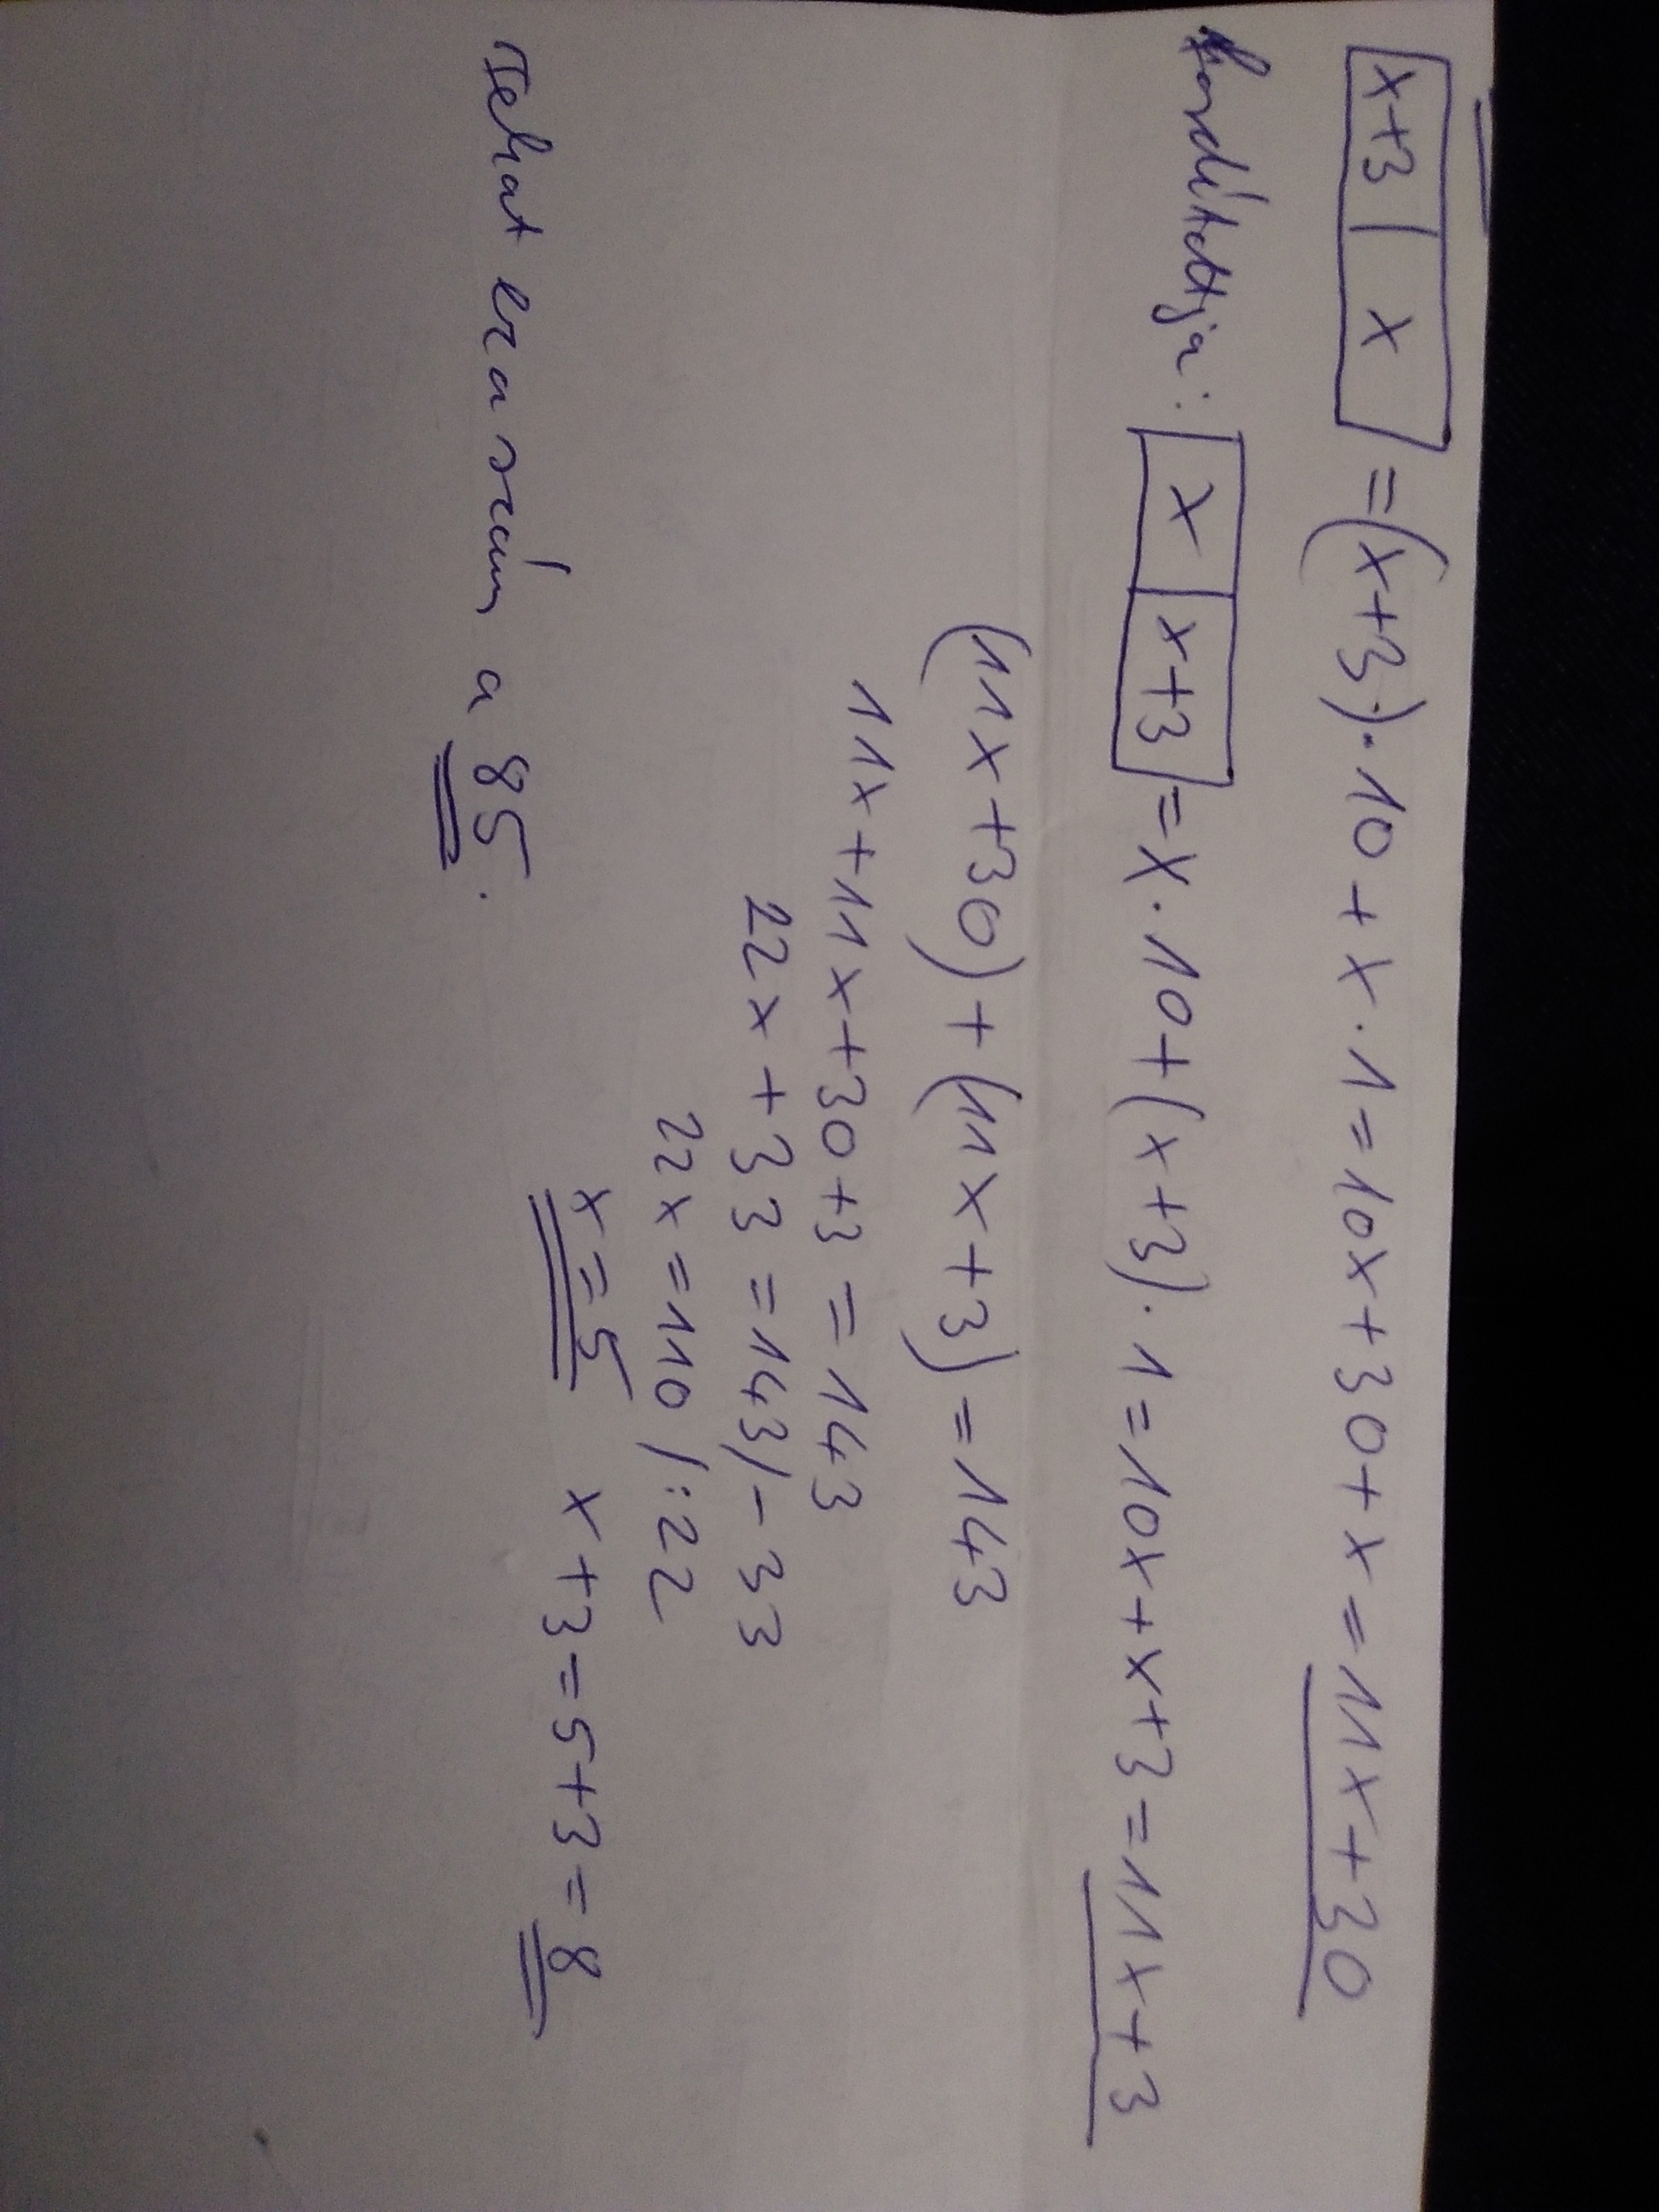 x+3 | x = (x+3)·10+x·1=10x+30+x=11x+30
fordítottja: x | x+3 = x·10+(x+3)·1=10x+x+3=11x+3
(11x+30)+(11x+3)=143
11x+11x+30+3=143
22x+33=143/-33
22x=110/:22
x=5 x+3=5+3=8
Tehát ez a szám a 85.